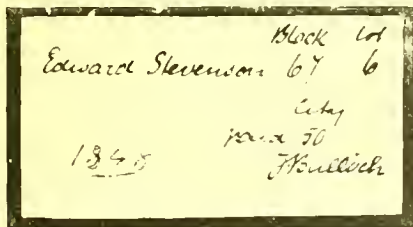 Block Lot
Edward Stevenson 67 6
City
paid 50
1848 TBullock